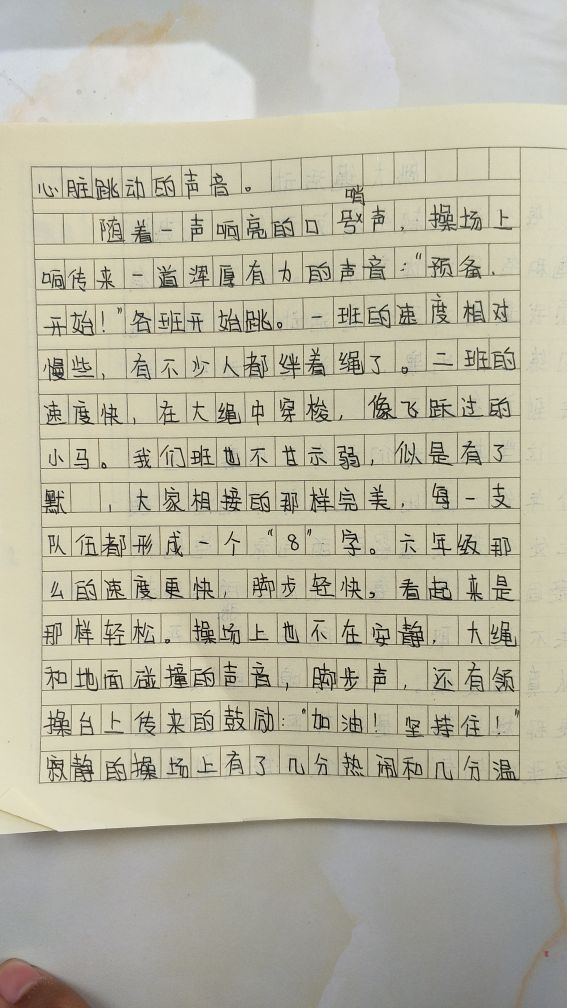 心脏跳动的声音。
哨
随着一声响亮的口号声，操场上
响传来一道浑厚有力的声音：“预备，
开始！”各班开始跳。一班的速度相对
慢些，有不少人都绊着绳了。二班的
速度快，在大绳中穿梭，像飞跃过的
小马。我们班也不甘示弱，似是有了
默 ，大家相接的那样完美，每一支
队伍都形成一个“8”字。六年级那
么的速度更快，脚步轻快。看起来是
那样轻松。操场上也不在安静，大绳
和地面碰撞的声音，脚步声，还有领
操台上传来的鼓励：“加油！坚持住！”
寂静的操场上有了几分热闹和几分温